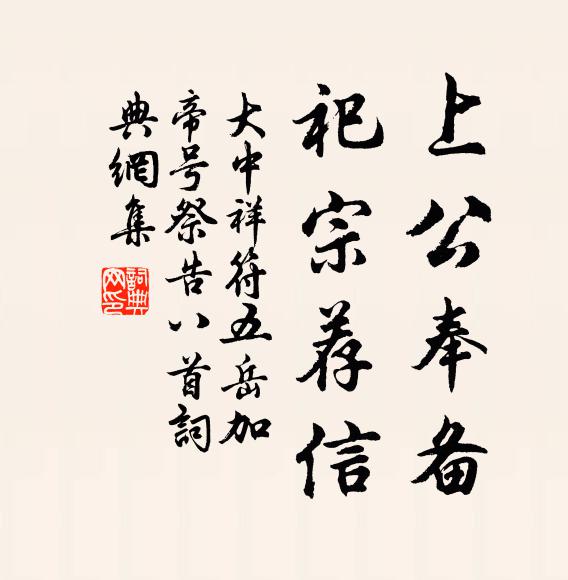 上公奉备
祀宗荐信
大中祥符五岳加
帝号祭告八首詞
典網集
詞典
网印